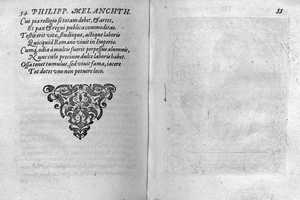 54 PHILIPP. MELANCHTH.
Cui pia relligio se totam debet, & artes,
Et pax & regni publica commoditas.
Testis erit vita, studiique, actique laboris
Quisquis Romano vivit in Imperio.
Cumq, odia à multis fuerit perpessus alumnis,
Nunc cœlo precium dulce laboris habet.
Ossa tenet tumulus, sed vivit fama, iacere
Tot dotes uno non potuere loco.
55